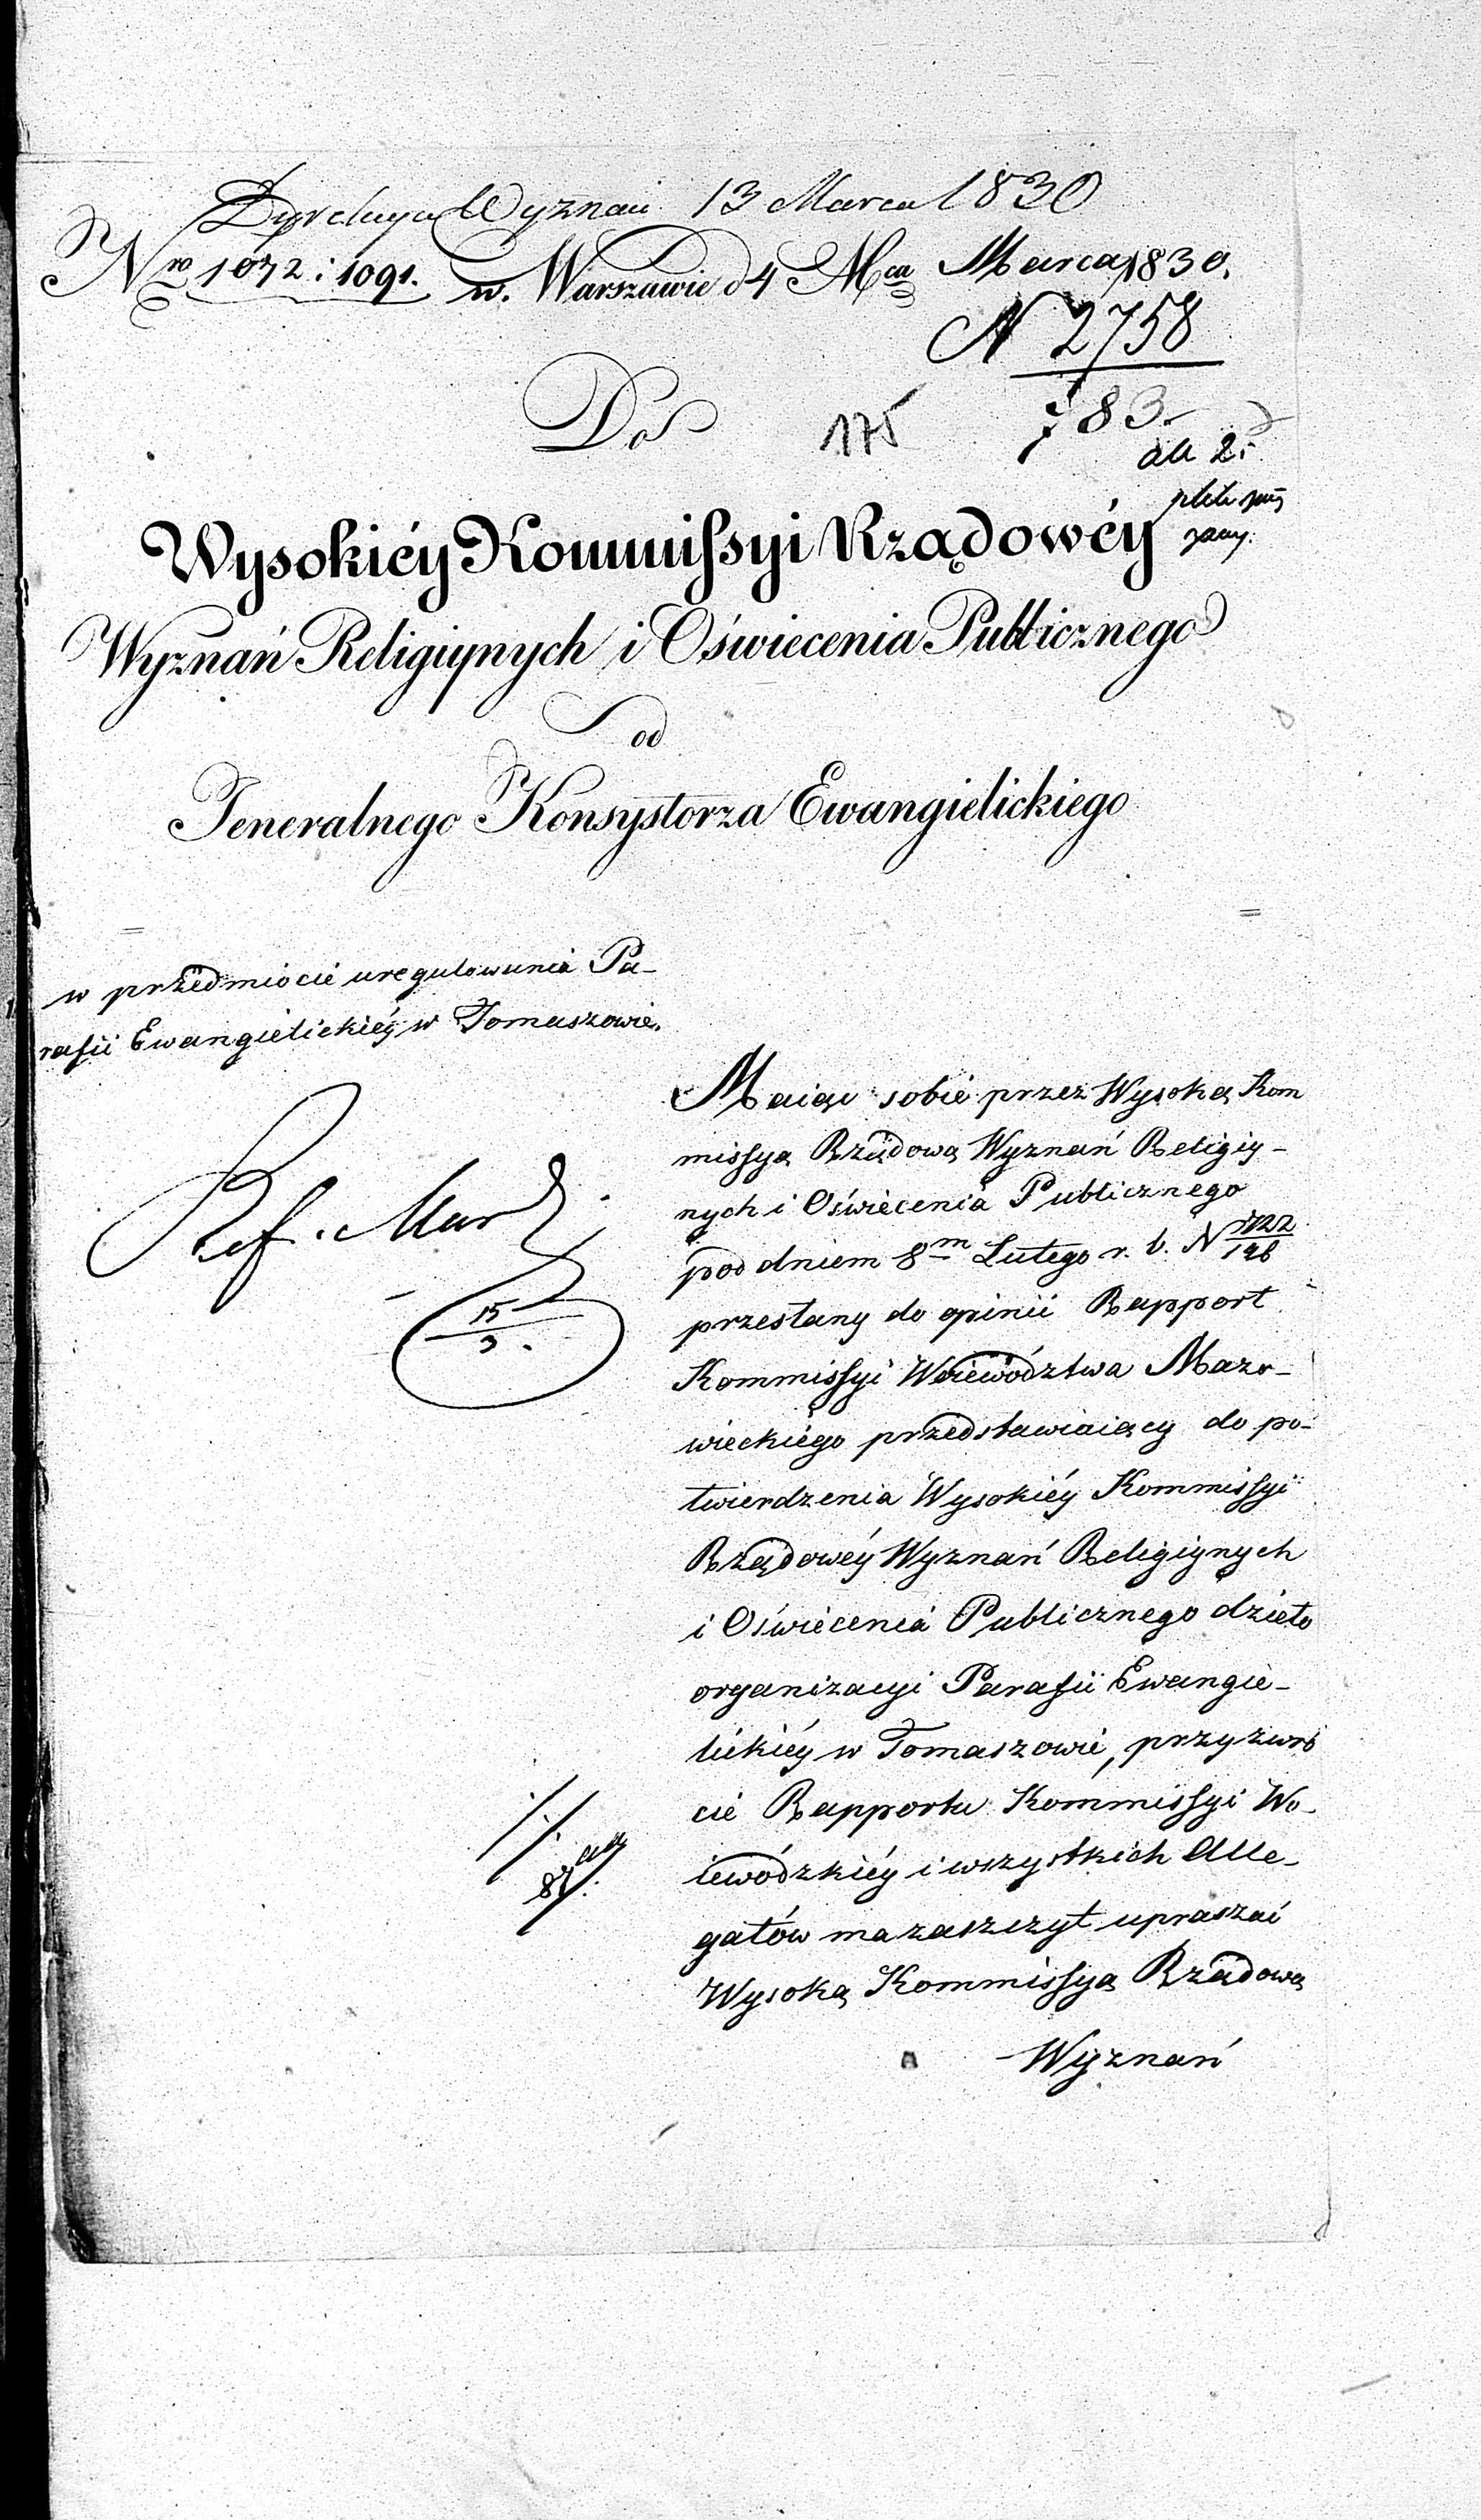 Dyrekcya Wyznań 13 Marca 1830
Nro 1072 i 1091. w Warszawie d 4 Mca Marca 1830.
N 2758
783
all 2.
Do 175
Wysokiéy Kommissyi Rządowéy
Wyznań Religiynych i Oświecenia Publicznego
od
Jeneralnego Konsystorza Ewangielickiego
w przedmiocie uregulowania Pa-
rafii Ewangielickiéy w Tomaszowie.
Ref.
15
3.
Maiąc sobie przez Wysoką Kom
missyą Rządową Wyznań Religiy-
nych i Oświecenia Publicznego
pod dniem 8m Lutego r. b. N 1722/126
przesłany do opinii Rapport
Kommissyi Woiewództwa Mazo-
wieckiego przedstawiaiący do po-
twierdzenia Wysokiéy Kommissyi
Rządowéy Wyznań Religiynych
i Oświecenia Publicznego dzieło
organizacyi Parafii Ewangie-
lickiéy w Tomaszowie, przy zwró
cie Rapportu Kommissyi Wo-
iewódzkiéy i wszystkich Alle-
gatów ma zaszczyt upraszać
Wysoką Kommissyą Rządową
Wyznań